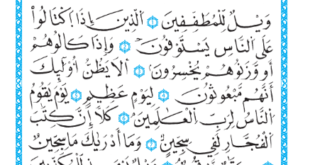 وَيْلٌ لِّلْمُطَفِّفِينَ ۝ ٱلَّذِينَ إِذَا ٱكْتَالُوا۟
عَلَى ٱلنَّاسِ يَسْتَوْفُونَ ۝ وَإِذَا كَالُوهُمْ
أَو وَّزَنُوهُمْ يُخْسِرُونَ ۝ أَلَا يَظُنُّ أُو۟لَٰٓئِكَ
أَنَّهُم مَّبْعُوثُونَ ۝ لِيَوْمٍ عَظِيمٍ ۝ يَوْمَ يَقُومُ
ٱلنَّاسُ لِرَبِّ ٱلْعَٰلَمِينَ ۝ كَلَّآ إِنَّ كِتَٰبَ
ٱلْفُجَّارِ لَفِى سِجِّينٍ ۝ وَمَآ أَدْرَىٰكَ مَا سِجِّينٌ